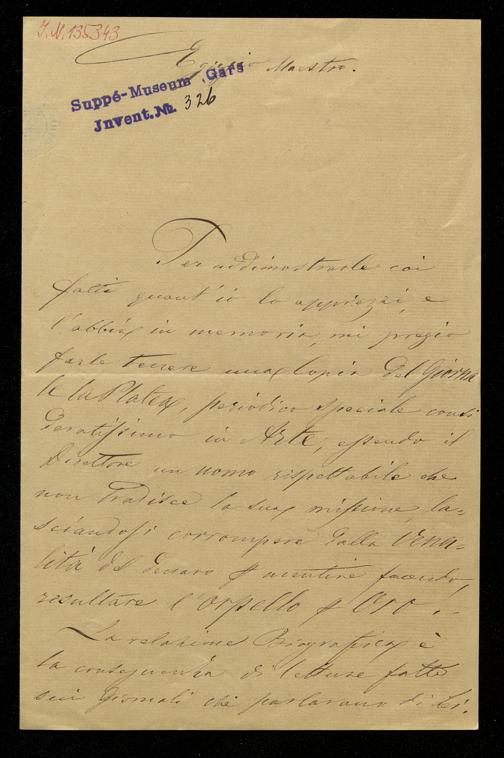 I.N. 135343
Egregio Maestro.
Suppé-Museum Gars
Invent.Nr. 326
Per addimostrarle coi
fatti quant'io lo apprezzai, e
l'abbia in memoria, mi pregio
farle tenere una Copia del Giorna
le la Platea, periodico speciale consi
deratissimo in Arte, essendo il
Direttore un uomo rispettabile che
non tradisce la sua missione, la-
sciandosi corrompere dalla Vena-
lità del denaro p mentire facendo
resultare l'Orpello p Oro.
La relazione Biografica è
la conseguenza di letture fatte
sui Giornali che parlarono di Lei.